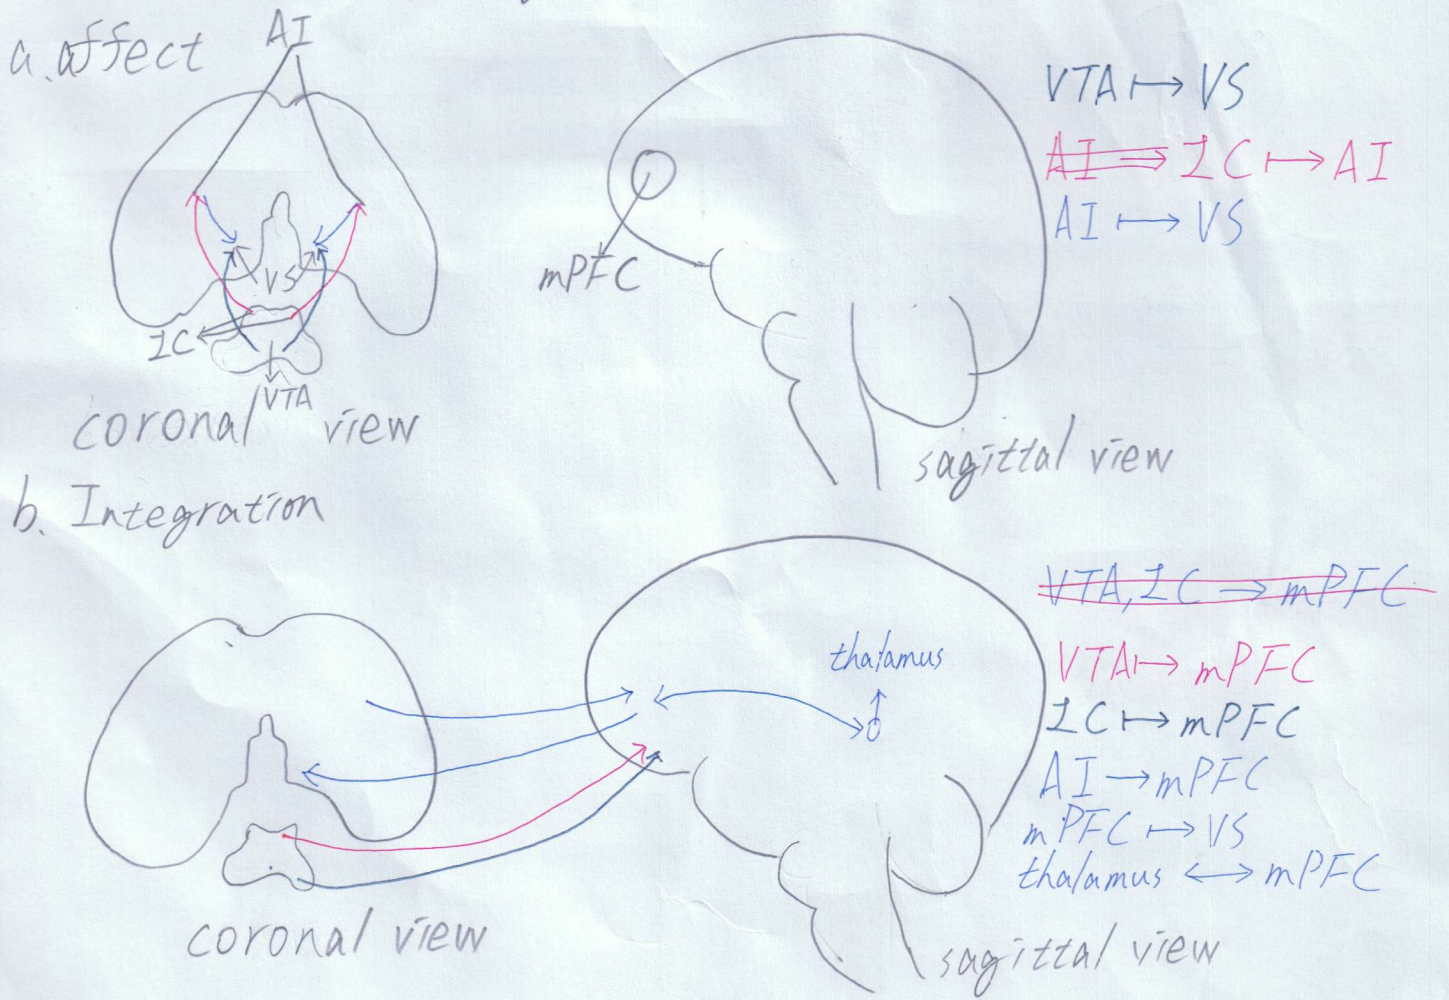 a. affect
AI
VS
LC
VTA
coronal view
mPFC
sagittal view
VTA ↦ VS
AI ⇒ LC ↦ AI
AI ↦ VS
b. Integration
coronal view
thalamus
sagittal view
VTA, LC → mPFC
VTA ↦ mPFC
LC ↦ mPFC
AI → mPFC
mPFC ↦ VS
thalamus ↔ mPFC